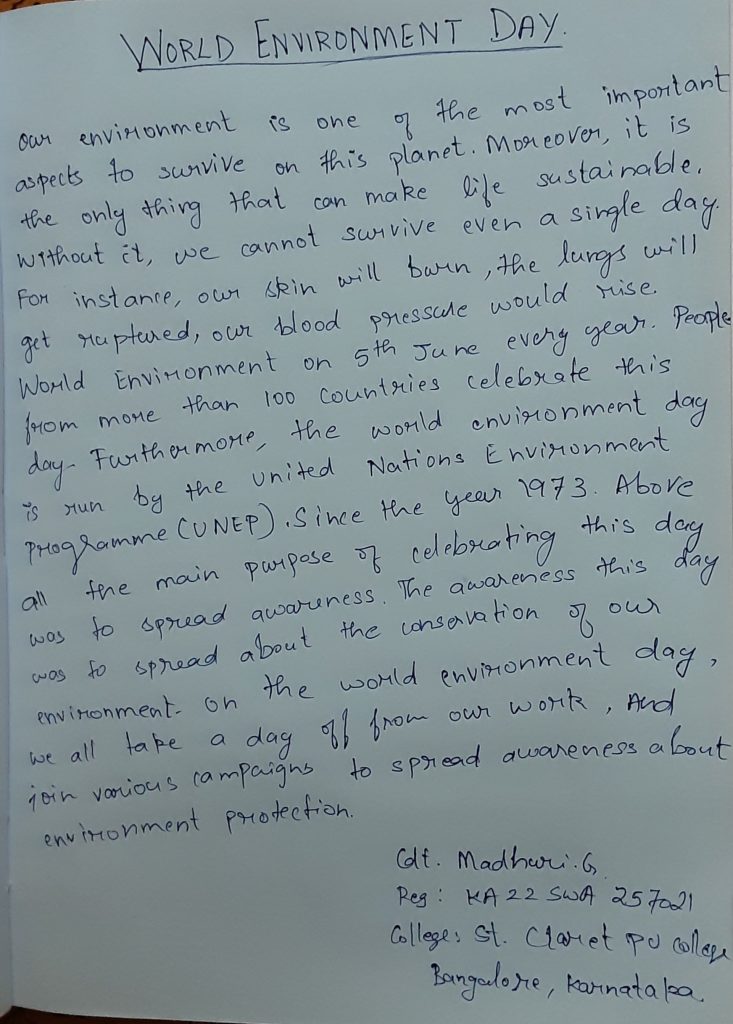 WORLD ENVIRONMENT DAY.
Our environment is one of the most important
aspects to survive on this planet. Moreover, it is
the only thing that can make life sustainable.
Without it, we cannot survive even a single day.
For instance, our skin will burn, the lungs will
get ruptured, our blood pressure would rise.
World Environment on 5th June every year. People
from more than 100 countries celebrate this
day. Furthermore, the world environment day
is run by the United Nations Environment
Programme (UNEP). Since the year 1973. Above
all the main purpose of celebrating this day
was to spread awareness. The awareness this day
was to spread about the conservation of our
environment. On the world environment day,
we all take a day off from our work, And
join various campaigns to spread awareness about
environment protection.
Cdt. Madhuri.G.
Reg: KA 22 SWA 257021
College: St. Claret PU college
Bangalore, Karnataka.